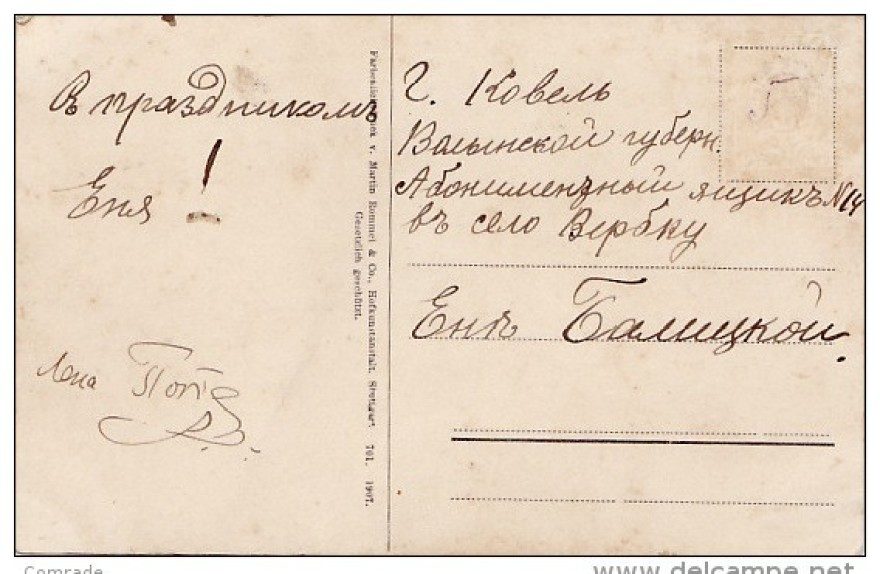 Съ праздникомъ
Еня!
Лена
Farbenlichtdruck v. Martin Rommel & Co., Hofkunstanstalt, Stuttgart 701. 1907.
Gesetzlich geschützt.
Г. Ковель
Волынской губерн.
Абониментный ящикъ N14
въ село Вербку
Енѣ Балицкой.
Comrade
www.delcampe.net